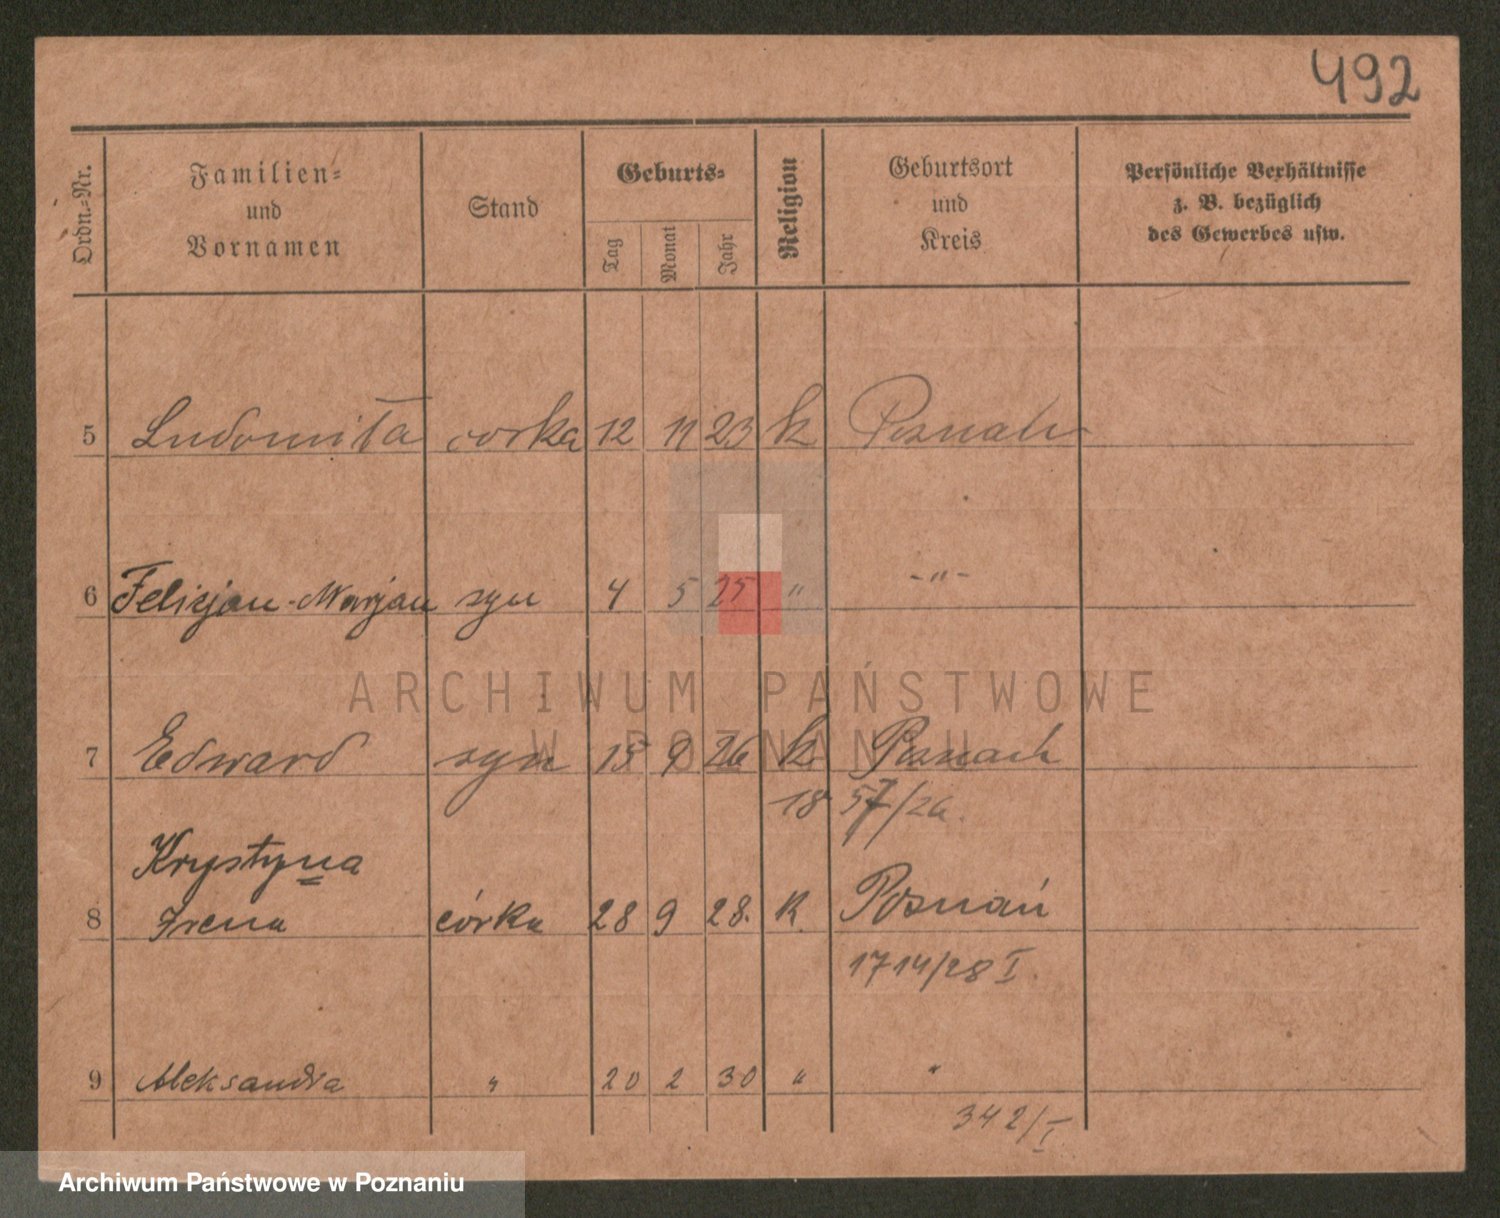 492
Ordn.-Nr.
Familien-
und
Vornamen
Stand
Geburts-
Tag
Monat
Jahr
Religion
Geburtsort
und
Kreis
Persönliche Verhältnisse
z. B. bezüglich
des Gewerbes usw.
5 Ludomiła córka 12 11 23 k Poznań
6 Felicjan-Marjan syn 4 5 25 " -"-
ARCHIWUM PAŃSTWOWE
W POZNANIU
7 Edward syn 15 9 26 k Poznań
1857/26.
Krystyna
8 Irena córka 28 9 28. K. Poznań
1714/28 I.
9 Aleksandra " 20 2 30 " "
342/I
Archiwum Państwowe w Poznaniu